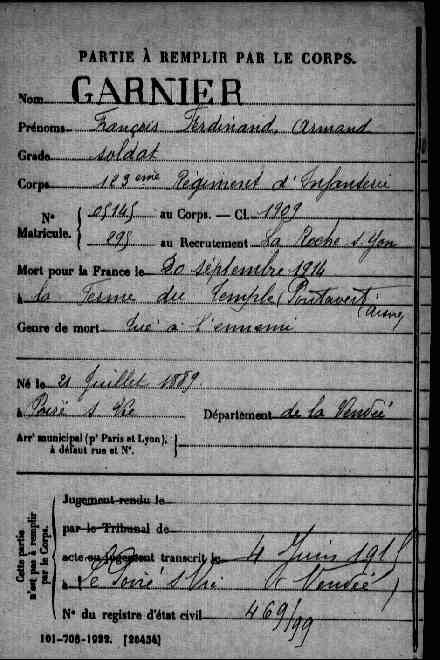 PARTIE À REMPLIR PAR LE CORPS.
Nom GARNIER
Prénoms François Ferdinand, Armand
Grade soldat
Corps 123 eme Régiment d'Infanterie
N° Matricule. { 05145 au Corps. — Cl. 1909
295 au Recrutement La Roche s. Yon
Mort pour la France le 30 septembre 1914
à la Ferme du Temple (Pontavert (Aisne)
Genre de mort Tué à l'ennemi
Né le 21 Juillet 1889
à Poiré s Vie Département de la Vendée
Arr' municipal (p' Paris et Lyon),
à défaut rue et N°.
Cette partie n'est pas à remplir par le Corps.
Jugement rendu le
par le Tribunal de
acte ou jugement transcrit le 4 Juin 191
à Le Poiré s/Vie (Vendée)
N° du registre d'état civil 469/99
101-708-1922. [26434]